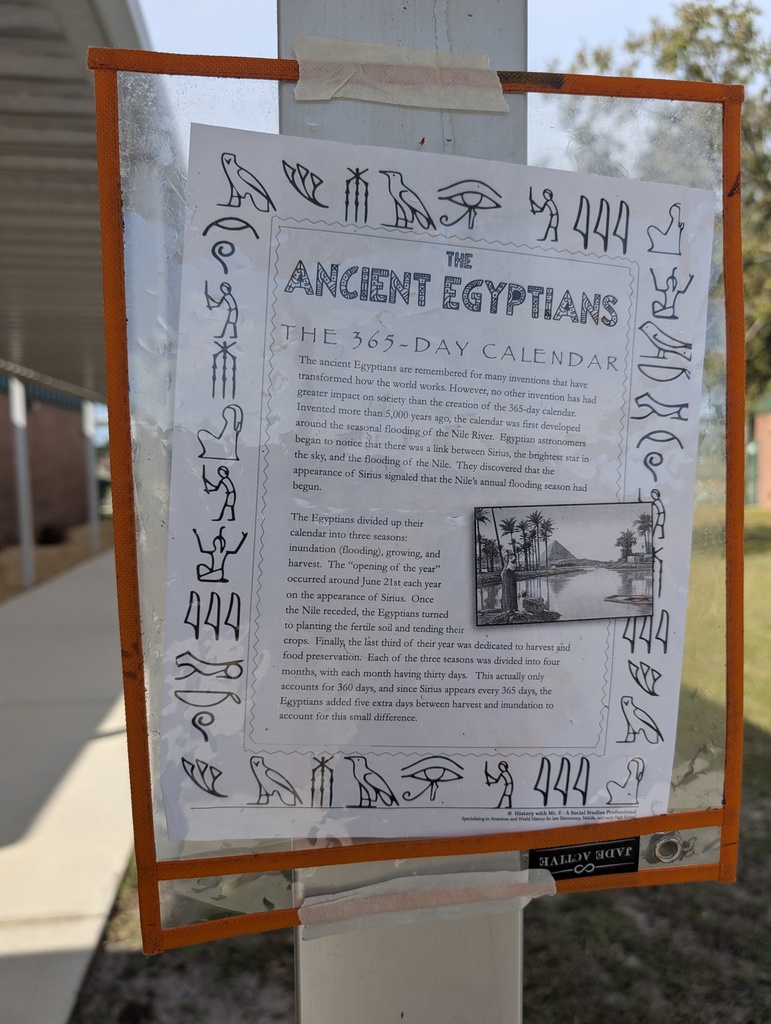 THE
ANCIENT EGYPTIANS
THE 365-DAY CALENDAR
The ancient Egyptians are remembered for many inventions that have
transformed how the world works. However, no other invention has had
greater impact on society than the creation of the 365-day calendar.
Invented more than 5,000 years ago, the calendar was first developed
around the seasonal flooding of the Nile River. Egyptian astronomers
began to notice that there was a link between Sirius, the brightest star in
the sky, and the flooding of the Nile. They discovered that the
appearance of Sirius signaled that the Nile's annual flooding season had
begun.
The Egyptians divided up their
calendar into three seasons:
inundation (flooding), growing, and
harvest. The "opening of the year"
occurred around June 21st each year
on the appearance of Sirius. Once
the Nile receded, the Egyptians turned
to planting the fertile soil and tending their
crops. Finally, the last third of their year was dedicated to harvest and
food preservation. Each of the three seasons was divided into four
months, with each month having thirty days. This actually only
accounts for 360 days, and since Sirius appears every 365 days, the
Egyptians added five extra days between harvest and inundation to
account for this small difference.
© History with Mr. E - A Social Studies Professional
Specializing in American and World History for late Elementary, Middle, and early High School
JADE ACTIVE